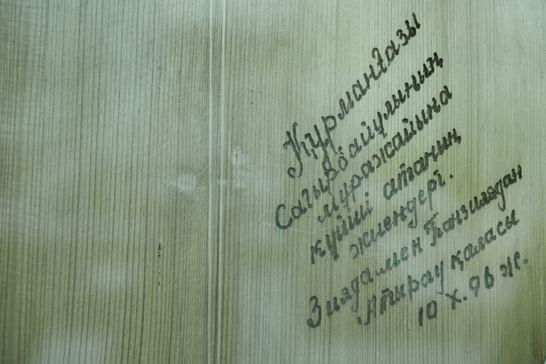 Құрманғазы
Сағырбайұлының
мұражайына
күйші атаның
жиендері.
Зиядамен Танзиладан
Атырау қаласы
10 X. 96 ж.